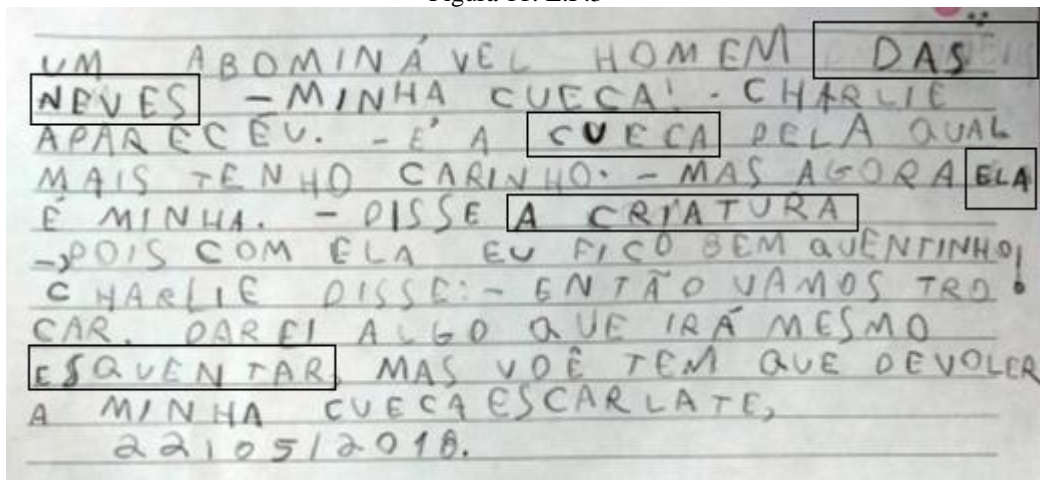 UM ABOMINÁVEL HOMEM DAS
NEVES - MINHA CUECA! - CHARLIE
APARECEU. - É A CUECA PELA QUAL
MAIS TENHO CARINHO. - MAS AGORA ELA
É MINHA. - DISSE A CRIATURA
- POIS COM ELA EU FICO BEM QUENTINHO!
CHARLIE DISSE: - ENTÃO VAMOS TRO
CAR. DAREI ALGO QUE IRÁ MESMO
ESQUENTAR, MAS VOÊ TEM QUE DEVOLER
A MINHA CUECA ESCARLATE,
22/05/2018.